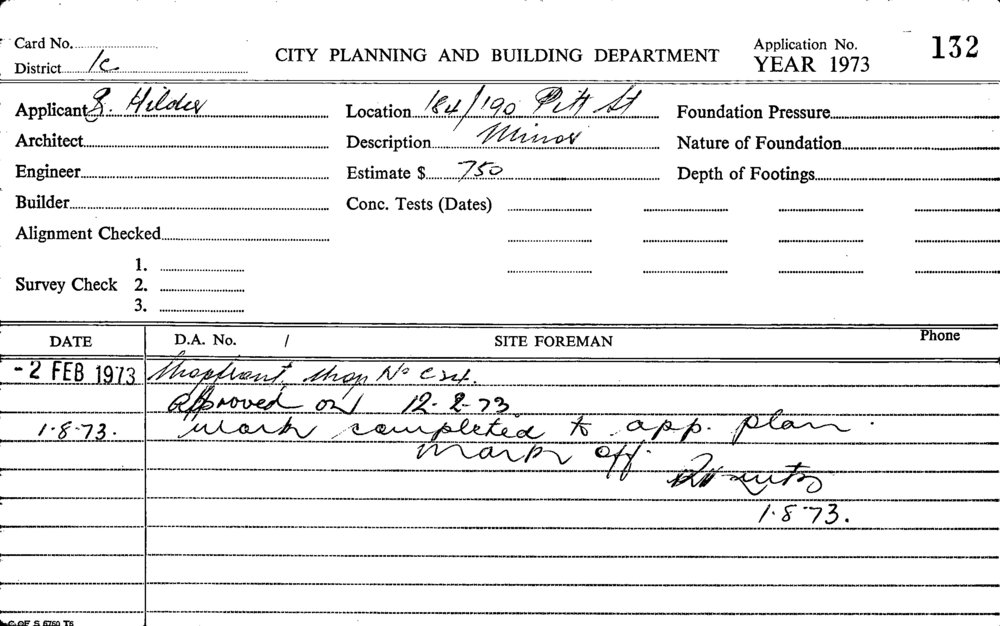 Card No.
District 1c
CITY PLANNING AND BUILDING DEPARTMENT
Application No. 132
YEAR 1973
Applicant Hilder
Location 184/190 Pitt St
Foundation Pressure
Architect
Description Minor
Nature of Foundation
Engineer
Estimate $ 750
Depth of Footings
Builder
Conc. Tests (Dates)
Alignment Checked
Survey Check 1.
2.
3.
DATE D.A. No. / SITE FOREMAN Phone
-2 FEB 1973 Shopfront, Shop No
Approved on 12.2.73
1.8.73. Work completed to app. plan.
Mark off.
1.8.73.
C OF S 6760 T6